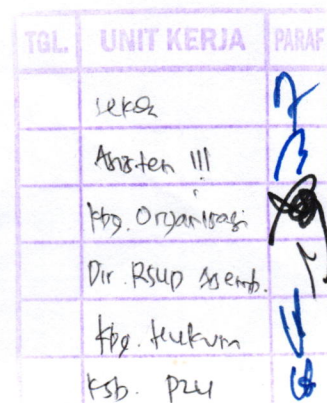 TGL. UNIT KERJA PARAF
Sekda
Asisten III
Kbg. Organisasi
Dir. RSUD Asemb.
Kbg. Hukum
Ksb. PZU